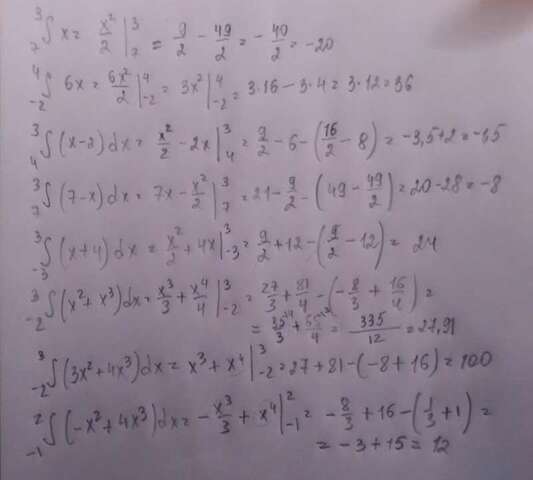 ³₇∫ x = x²/2 |³₇ = 9/2 - 49/2 = - 40/2 = -20
⁴₋₂∫ 6x = 6x²/2 |⁴₋₂ = 3x² |⁴₋₂ = 3·16 - 3·4 = 3·12 = 36
³₄∫ (x-2) dx = x²/2 - 2x |³₄ = 9/2 - 6 - (16/2 - 8) = -3,5+2 = -1,5
³₇∫ (7-x) dx = 7x - x²/2 |³₇ = 21 - 9/2 - (49 - 49/2) = 20-28 = -8
³₋₃∫ (x+4) dx = x²/2 + 4x |³₋₃ = 9/2 + 12 - (9/2 - 12) = 24
³₋₂∫ (x² + x³) dx = x³/3 + x⁴/4 |³₋₂ = 27/3 + 81/4 - (-8/3 + 16/4) =
= 35/3 + 65/4 = 335/12 = 27,91
³₋₂∫ (3x² + 4x³) dx = x³ + x⁴ |³₋₂ = 27 + 81 - (-8 + 16) = 100
²₋₁∫ (-x² + 4x³) dx = - x³/3 + x⁴ |²₋₁ = - 8/3 + 16 - (1/3 + 1) =
= -3 + 15 = 12